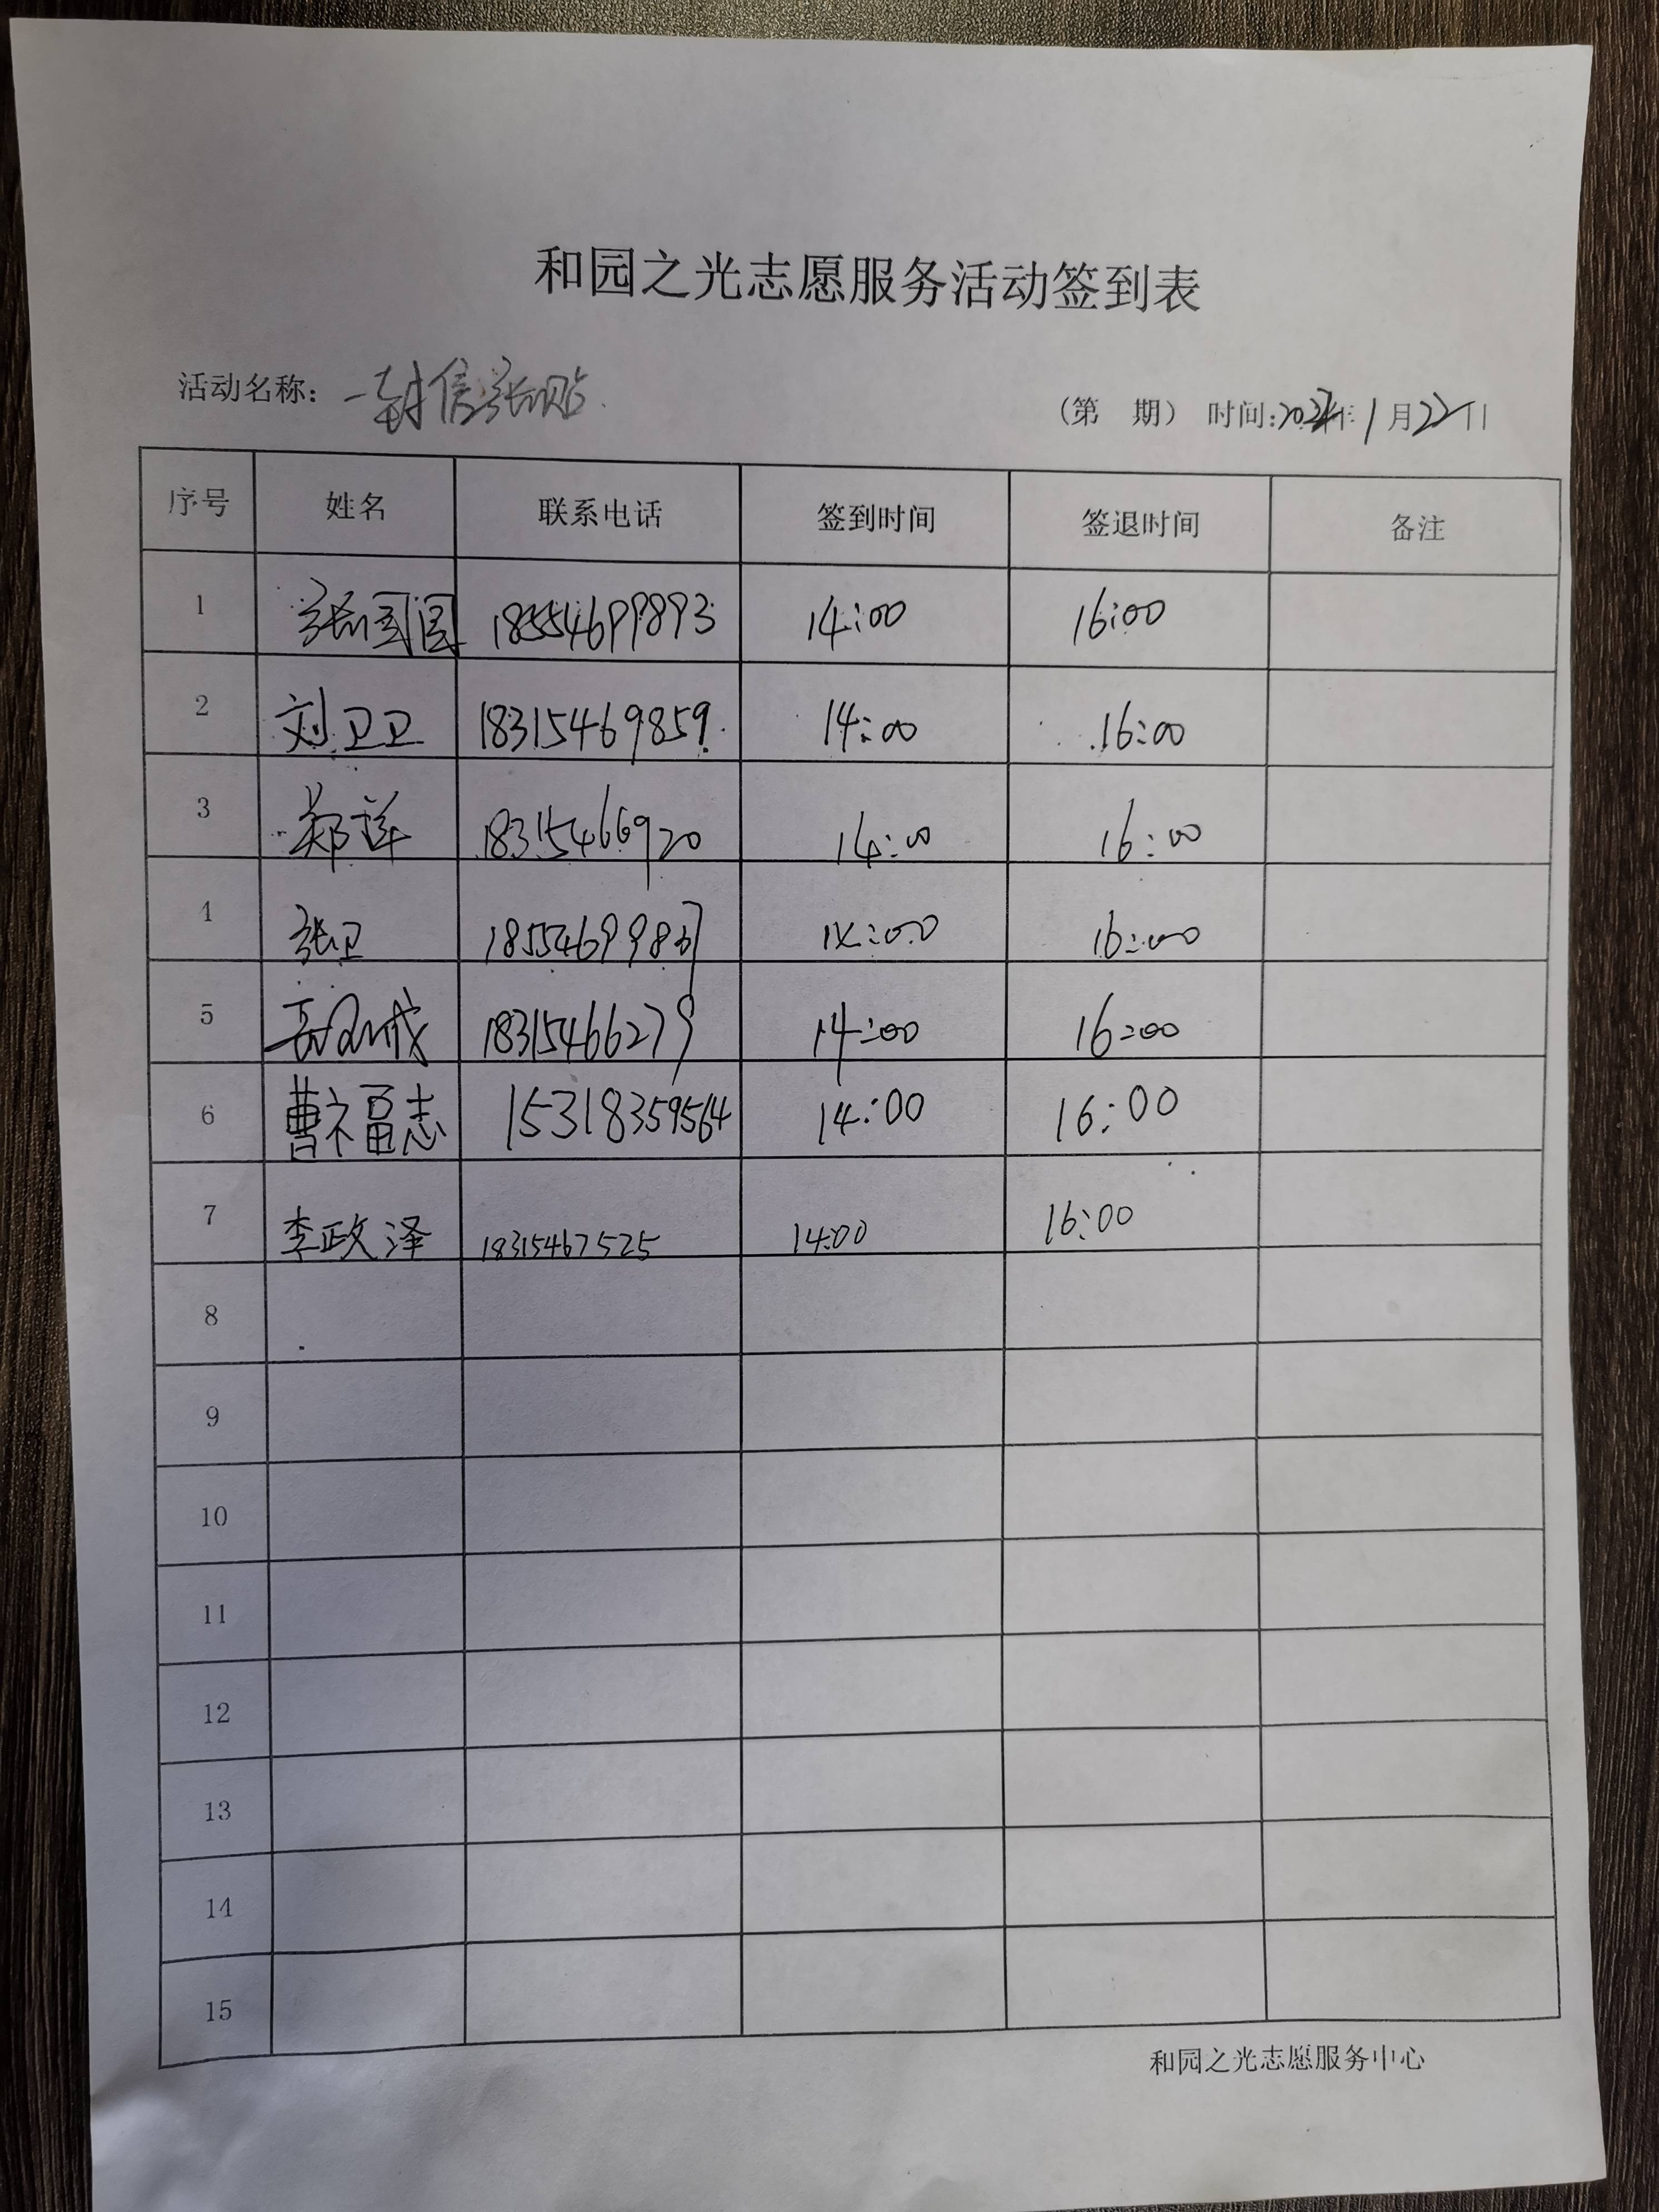 和园之光志愿服务活动签到表
活动名称：一封信张贴
（第 期） 时间: 年1月22日
序号 姓名 联系电话 签到时间 签退时间 备注
1 张国国 18554699893 14:00 16:00
2 刘卫卫 18315469859 14:00 16:00
3 郑祥 18315466920 14:00 16:00
4 张卫 14:00 16:00
5 18315466279 14:00 16:00
6 曹福志 15318359564 14:00 16:00
7 李政泽 18315467525 14:00 16:00
8
9
10
11
12
13
14
15
和园之光志愿服务中心